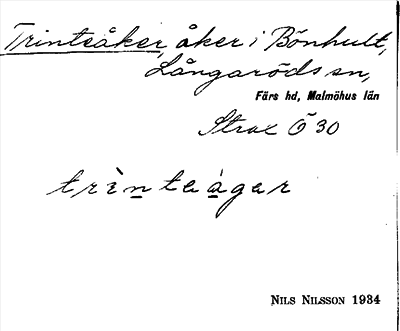 Trinteåker, åker i Bönhult,
Långaröds sn,
Färs hd, Malmöhus län
Strax Ö 30
trìnteågar
NILS NILSSON 1934